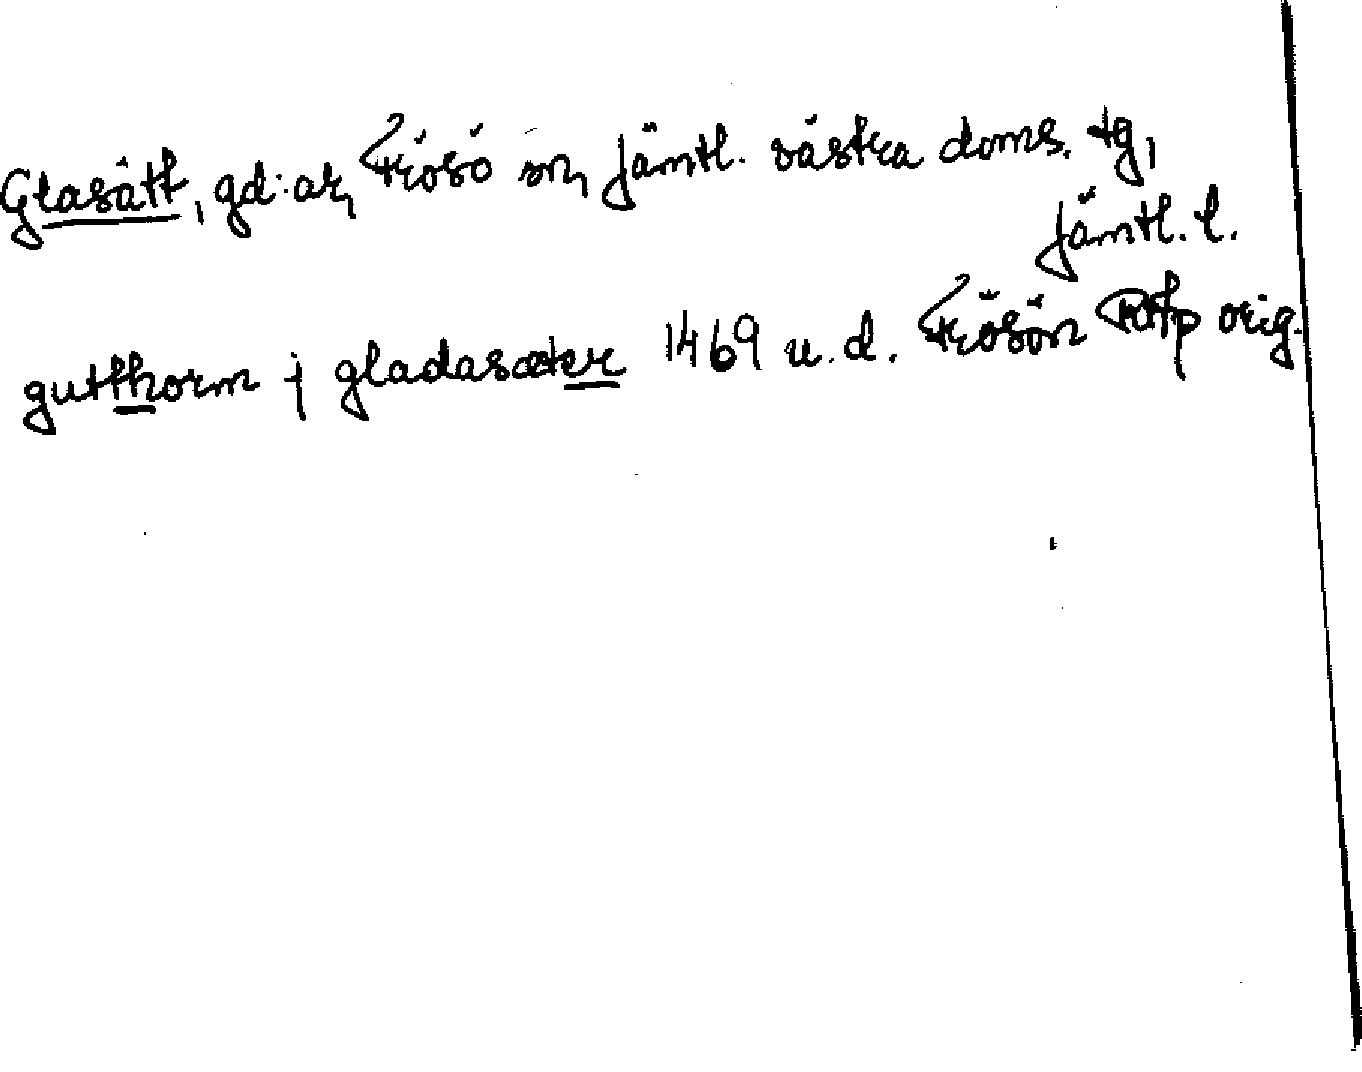 Glasätt, gd:ar, Frösö sn, Jämtl. västra doms. tg,
Jämtl. l.
gutthorm j gladasæter 1469 u. d. Frösön RAp orig.